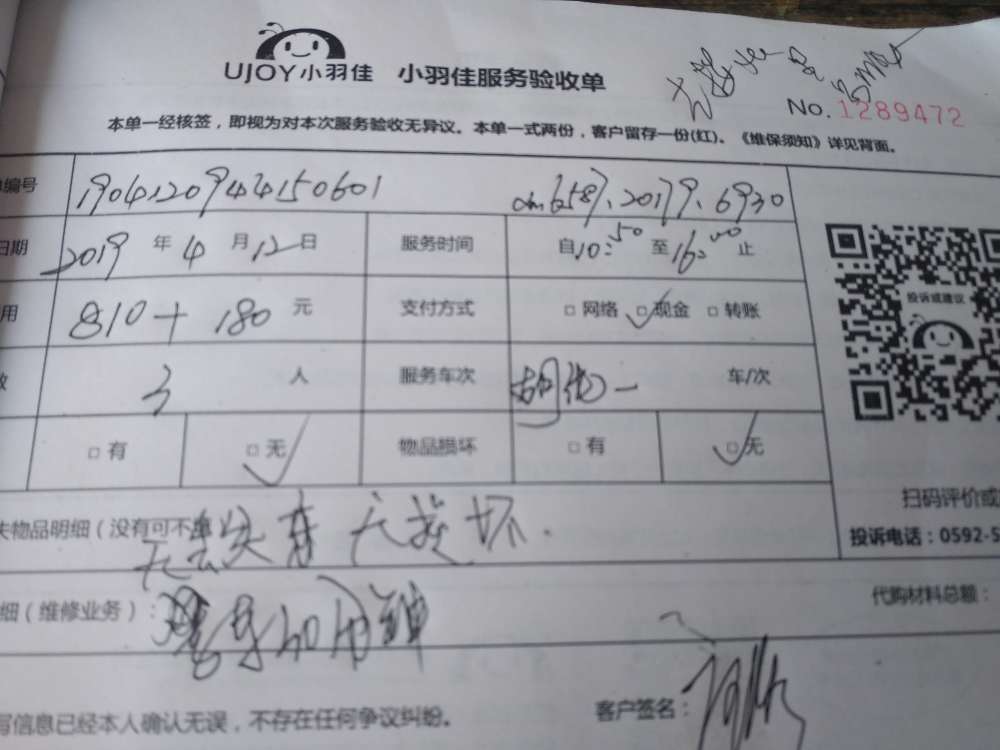 UJOY小羽佳 小羽佳服务验收单
No. 1289472
本单一经核签，即视为对本次服务验收无异议。本单一式两份，客户留存一份(红)。《维保须知》详见背面。
编号 1904120944150601 6587、20179、6930
日期 2019年4月12日 服务时间 自10:50至16:00止
用 810+180元 支付方式 □网络 □现金 □转账
数 3人 服务车次 一 车/次
□有 □无 物品损坏 □有 □无
投诉或建议
失物品明细（没有可不填 无丢失 无损坏.
扫码评价或
投诉电话：0592-5
细（维修业务）：
代购材料总额：
写信息已经本人确认无误，不存在任何争议纠纷。 客户签名：